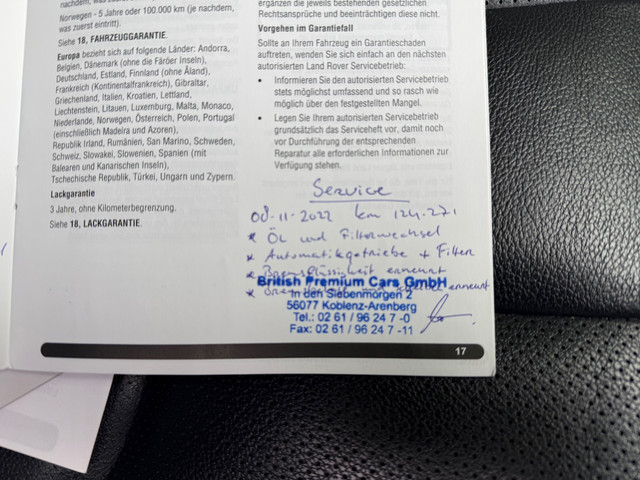 nachdem, was
Norwegen - 5 Jahre oder 100.000 km (je nachdem,
was zuerst eintritt).
Siehe 18, FAHRZEUGGARANTIE.
Europa bezieht sich auf folgende Länder: Andorra,
Belgien, Dänemark (ohne die Färöer Inseln),
Deutschland, Estland, Finnland (ohne Åland),
Frankreich (Kontinentalfrankreich), Gibraltar,
Griechenland, Italien, Kroatien, Lettland,
Liechtenstein, Litauen, Luxemburg, Malta, Monaco,
Niederlande, Norwegen, Österreich, Polen, Portugal
(einschließlich Madeira und Azoren),
Republik Irland, Rumänien, San Marino, Schweden,
Schweiz, Slowakei, Slowenien, Spanien (mit
Balearen und Kanarischen Inseln),
Tschechische Republik, Türkei, Ungarn und Zypern.
Lackgarantie
3 Jahre, ohne Kilometerbegrenzung.
Siehe 18, LACKGARANTIE.
ergänzen die jeweils bestehenden gesetzlichen
Rechtsansprüche und beeinträchtigen diese nicht.
Vorgehen im Garantiefall
Sollte an Ihrem Fahrzeug ein Garantieschaden
auftreten, wenden Sie sich einfach an den nächsten
autorisierten Land Rover Servicebetrieb:
• Informieren Sie den autorisierten Servicebetrieb
stets möglichst umfassend und so rasch wie
möglich über den festgestellten Mangel.
• Legen Sie Ihrem autorisierten Servicebetrieb
grundsätzlich das Serviceheft vor, damit noch
vor Durchführung der entsprechenden
Reparatur alle erforderlichen Informationen zur
Verfügung stehen.
Service
08-11-2022 km 124.271
* Öl und Filterwechsel
* Automatikgetriebe + Filter
* Bremsflüssigkeit erneurt
British Premium Cars GmbH
* erneurt
In den Siebenmorgen 2
56077 Koblenz-Arenberg
Tel.: 02 61 / 96 24 7 -0
Fax: 02 61 / 96 24 7 -11
17